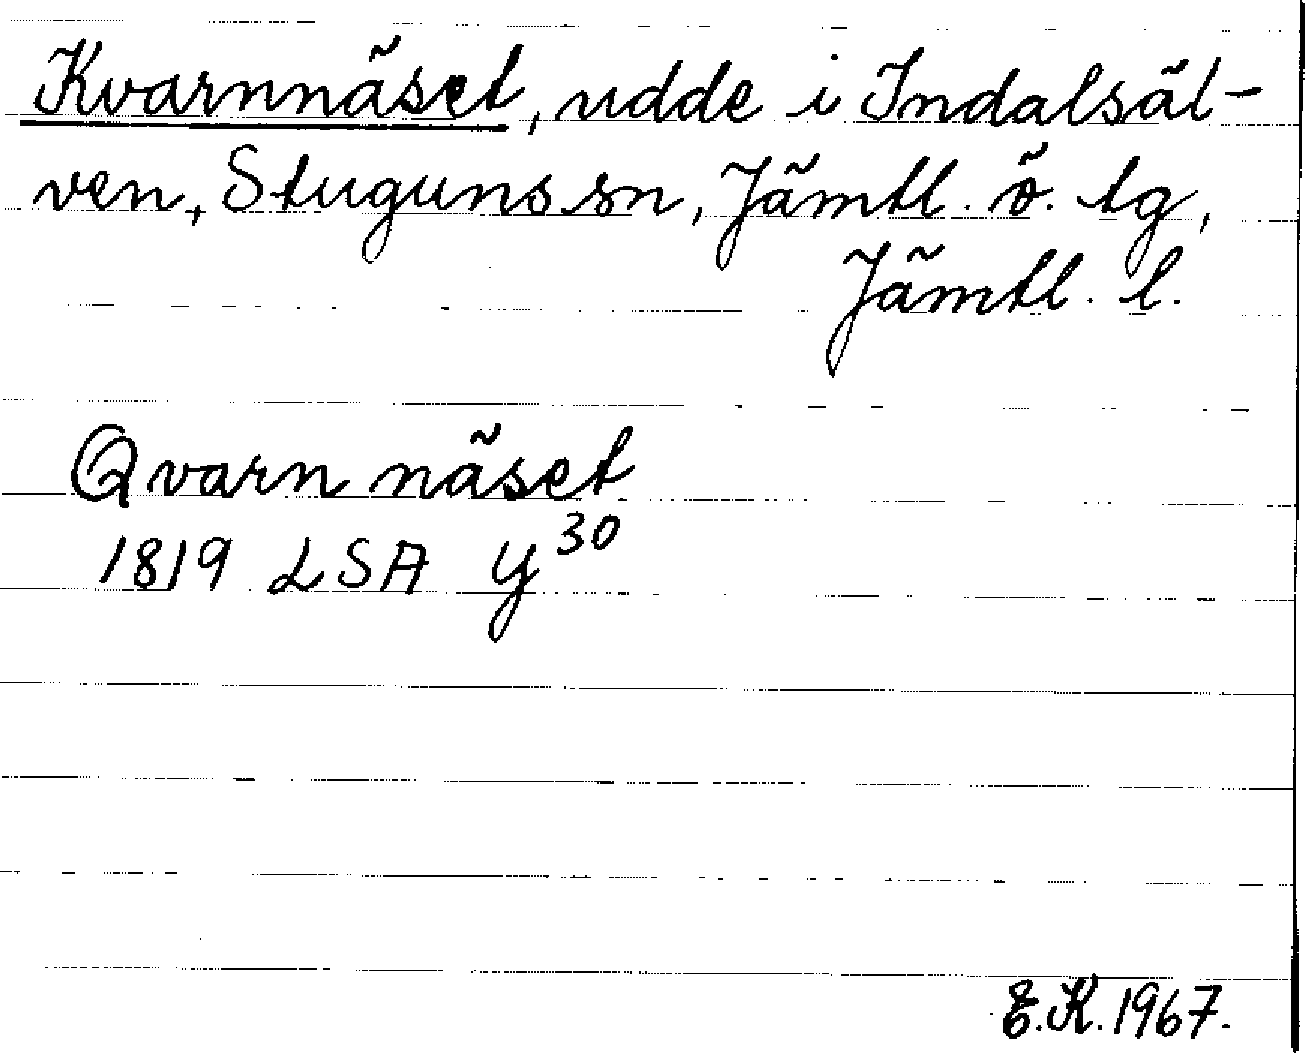 Kvarnnäset, udde i Indalsäl-
ven, Stuguns sn, Jämtl. ö. tg,
Jämtl. l.
Qvarn näset
1819 LSA Y 30
E.K. 1967.